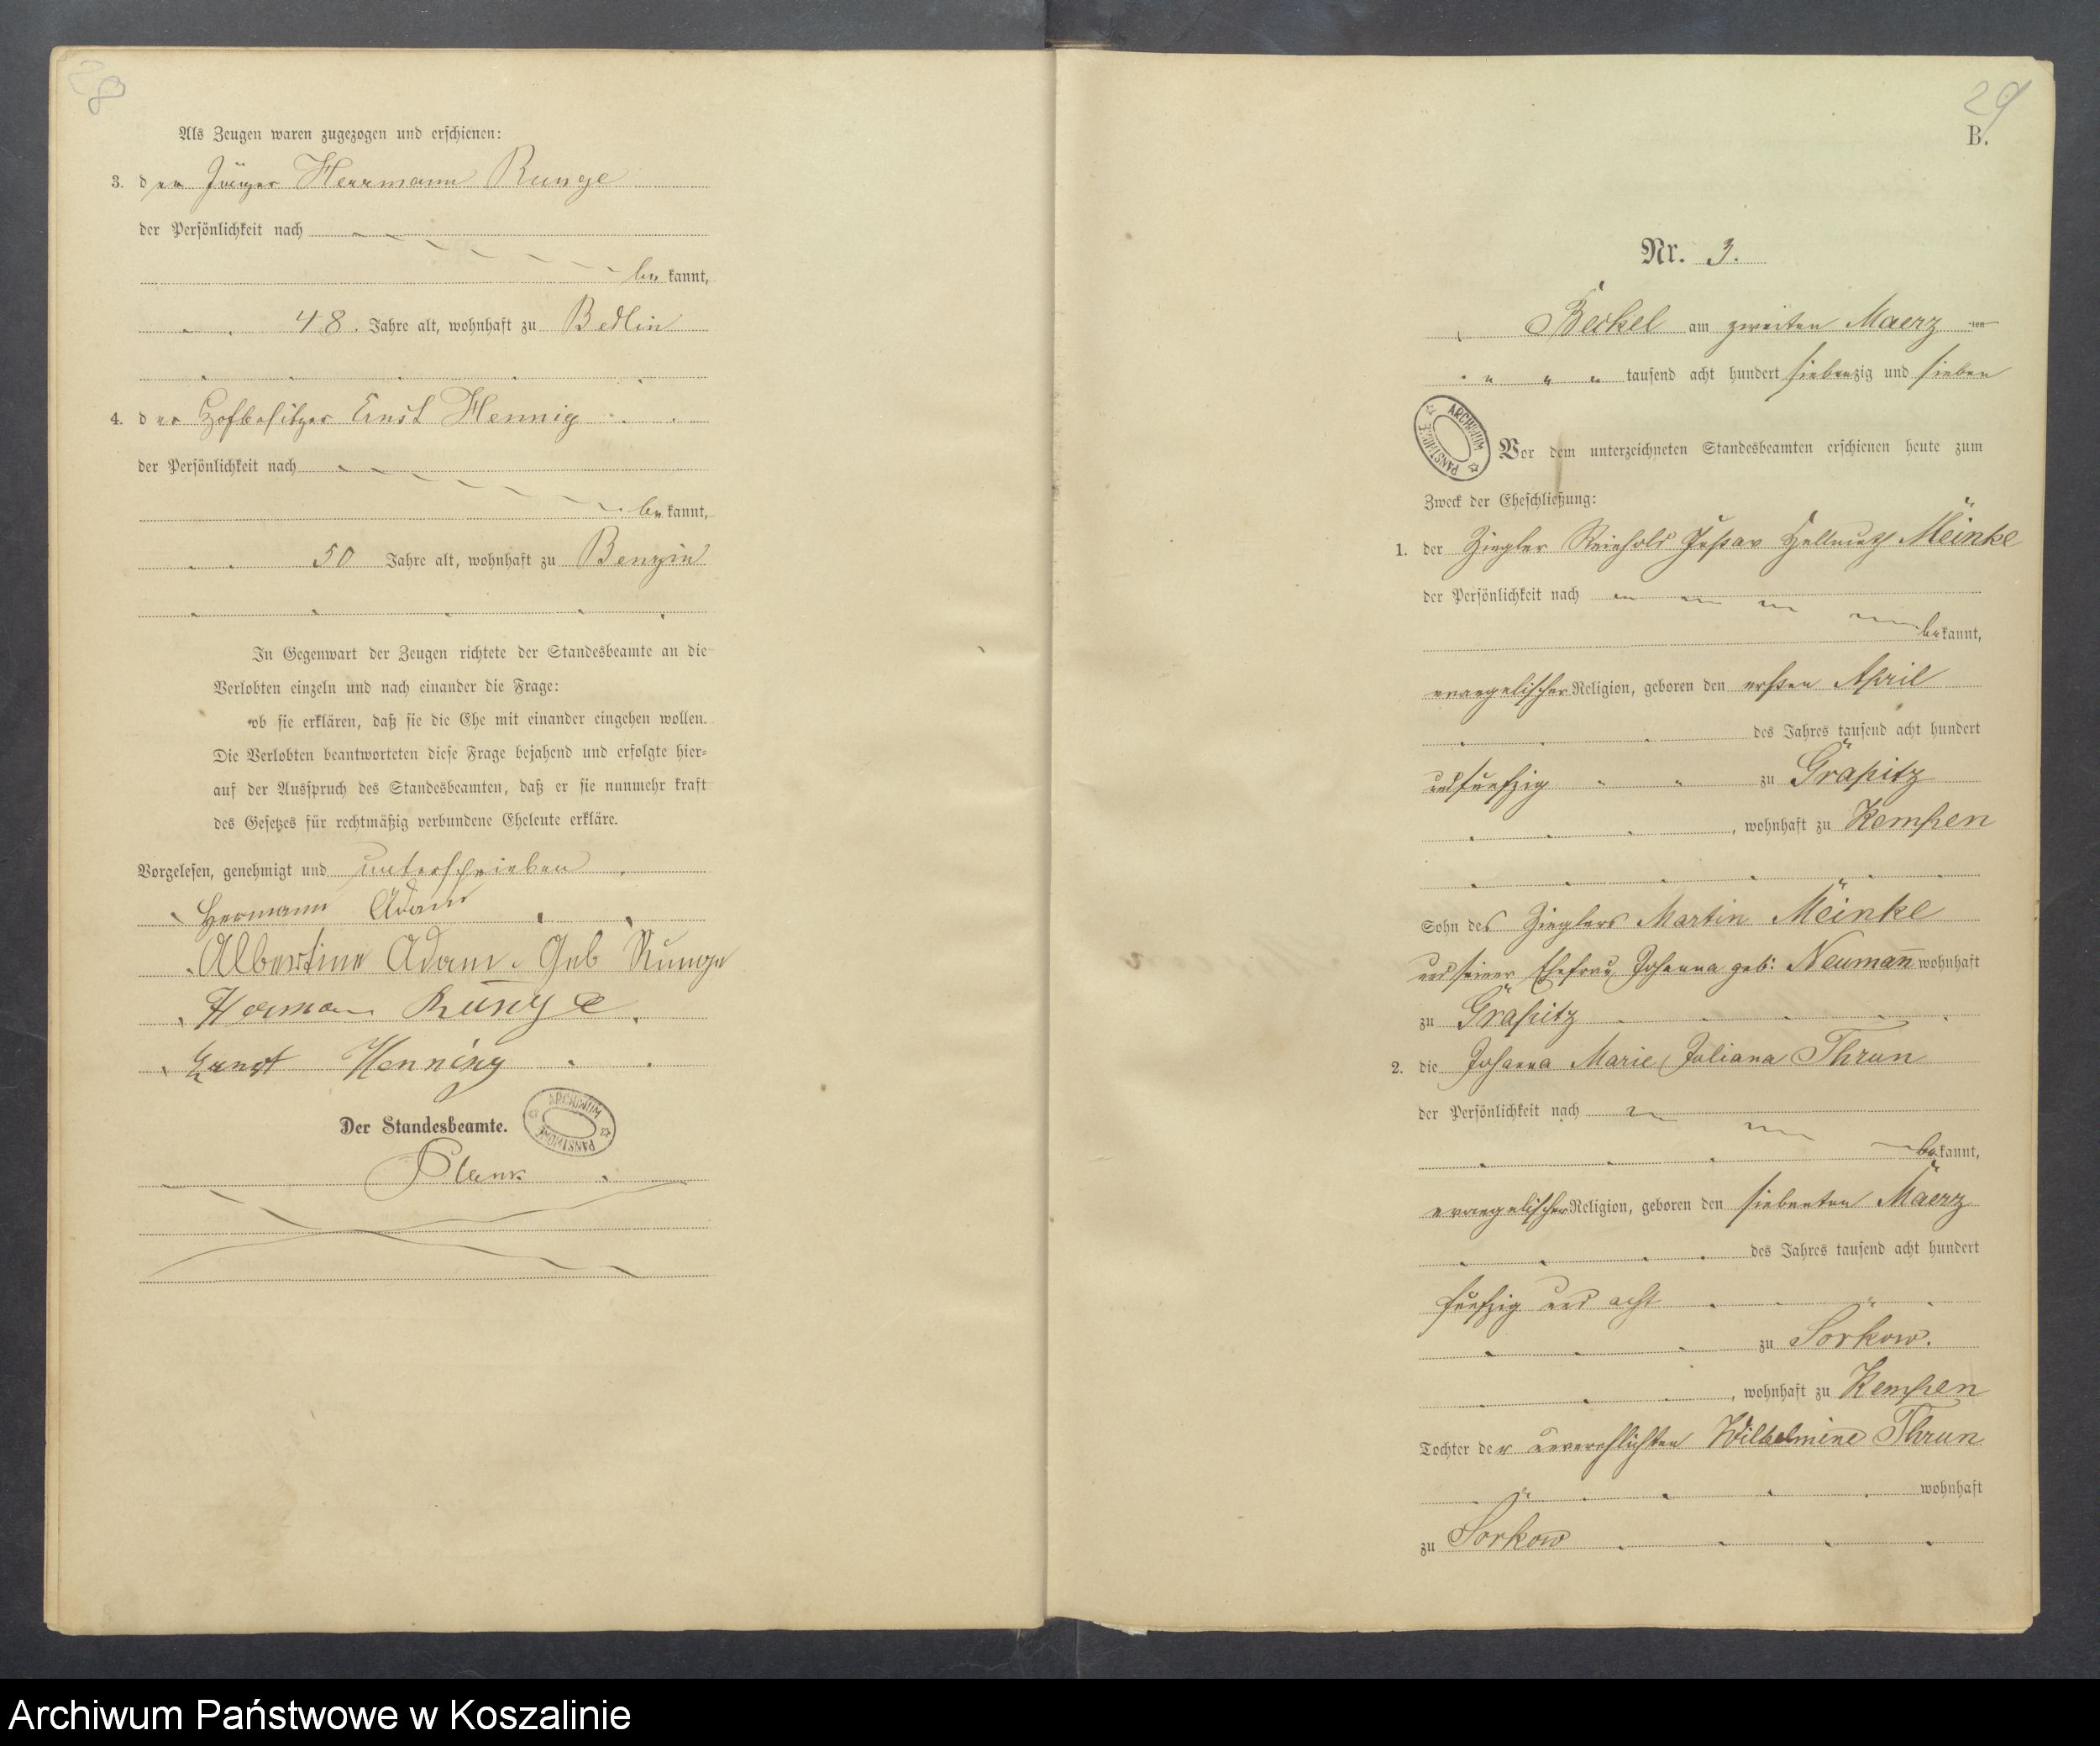 28
Als Zeugen waren zugezogen und erschienen:
3. der Jäger Herrmann Runge
der Persönlichkeit nach
bekannt,
48. Jahre alt, wohnhaft zu Bedlin
4. der Hofbesitzer Ernst Hennig
der Persönlichkeit nach
bekannt,
50 Jahre alt, wohnhaft zu Benzin
In Gegenwart der Zeugen richtete der Standesbeamte an die
Verlobten einzeln und nach einander die Frage:
ob sie erklären, daß sie die Ehe mit einander eingehen wollen.
Die Verlobten beantworteten diese Frage bejahend und erfolgte hier=
auf der Ausspruch des Standesbeamten, daß er sie nunmehr kraft
des Gesetzes für rechtmäßig verbundene Eheleute erkläre.
Vorgelesen, genehmigt und unterschrieben
Hermann Adam
Albertine Adam Geb Runge
Herman Runge
Ernst Henning
Der Standesbeamte.
ARCHIWUM PAŃSTWOWE
29
B.
Nr. 3.
Beckel am zweiten Maerz ten
tausend acht hundert siebenzig und sieben
ARCHIWUM PAŃSTWOWE
Vor dem unterzeichneten Standesbeamten erschienen heute zum
Zweck der Eheschließung:
1. der Ziegler Reinhold Gustav Hellmuth Meinke
der Persönlichkeit nach
bekannt,
evangelischer Religion, geboren den ersten April
des Jahres tausend acht hundert
und fünfzig zu Grapitz
, wohnhaft zu Kempen
Sohn des Zieglers Martin Meinke
und seiner Ehefrau Johanna geb: Neumañ wohnhaft
zu Grapitz
2. die Johanna Marie Juliana Thrun
der Persönlichkeit nach
bekannt,
evangelischer Religion, geboren den siebenten Maerz
des Jahres tausend acht hundert
fünfzig und acht
zu Sorkow.
, wohnhaft zu Kempen
Tochter der unverehlichten Wilhelmine Thrun
wohnhaft
zu Sorkow
Archiwum Państwowe w Koszalinie